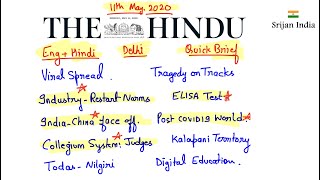 11th May, 2020
THE HINDU
Srijan India
Eng + Hindi Delhi Quick Brief
Viral Spread.
Tragedy on Tracks
Industry-Restart-Norms
ELISA Test
India-China face off.
Post COVID19 World.
Collegium System: Judges
Kalapani Territory
Todas-Nilgiri
Digital Education.